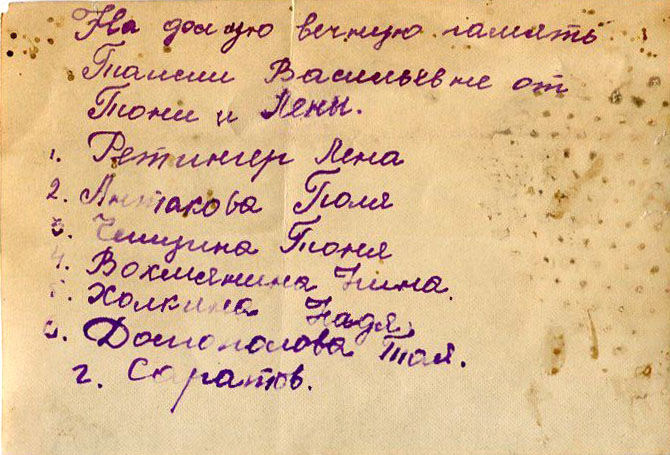 На долгую вечную память
Таисии Васильевне от
Тони и Лены.
1. Ретингер Лена
2. Антакова Поля
3. Тоня
4. Вохмянина Нина.
5. Холкина Надя.
6. Тая.
г. Саратов.